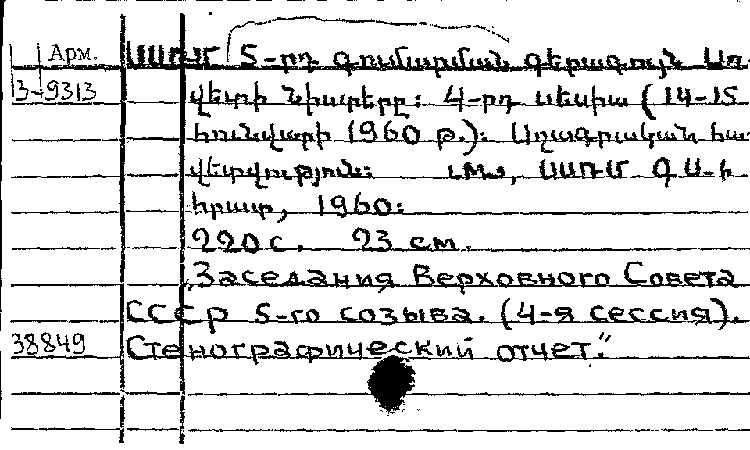 Арм. ՍՍՌՄ 5-րդ գումարման գերագույն Սո-
3-9313 վետի նիստերը: 4-րդ սեսիա (14-15
հունվարի 1960 թ.): Սղագրական հա-
վետվություն: Մ., ՍՍՌՄ ԳԱ-ի
հրատ, 1960:
220 с. 23 см.
„Заседания Верховного Совета
СССР 5-го созыва. (4-я сессия).
38849 Стенографический отчет."